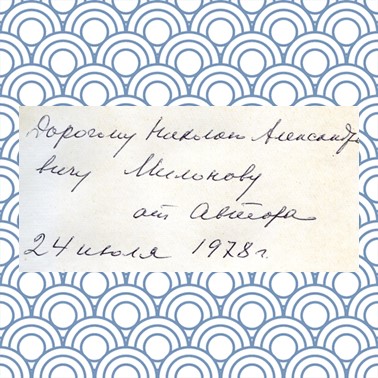 Дорогому Николаю Александро
вичу Милонову
от Автора
24 июля 1978 г.